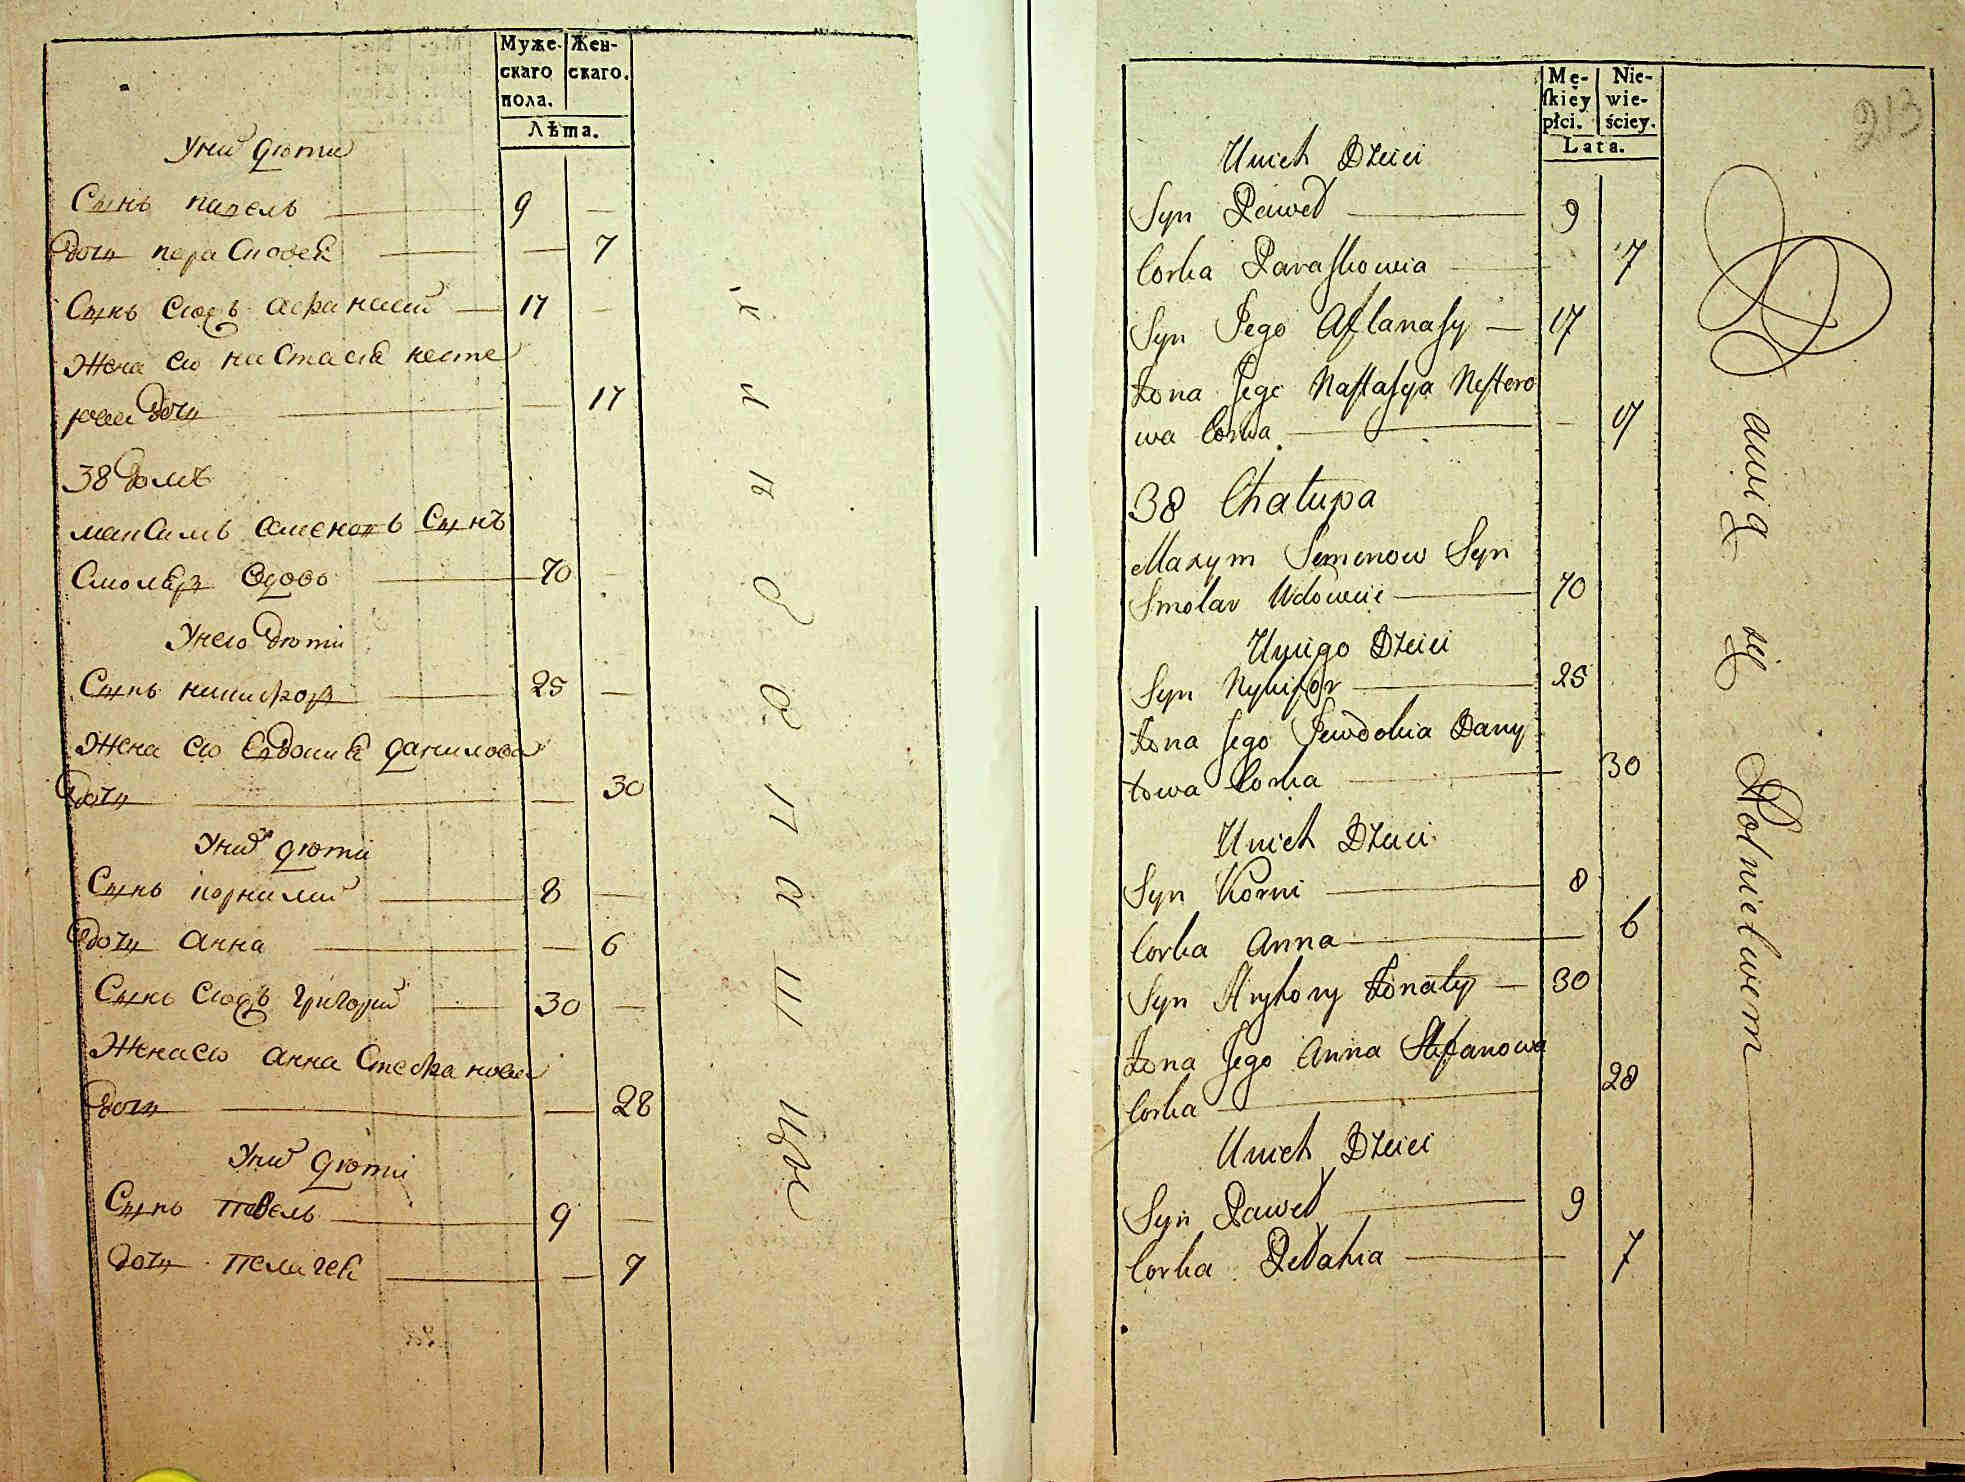 Муже-
скаго
пола.
Жен-
скаго.
Лѣта.
Унихъ дѣти
Сынъ павелъ 9
Дочь парасковея 7
Сынъ его афанасий 17
Жена его настася несте
рова дочь 17
38 домъ
максимъ семеновъ Сынъ
Смоляръ вдовъ 70
Унего дѣти
Сынъ никифоръ 25
Жена его Евдокия данилова
дочь 30
Унихъ дѣти
Сынъ корнилий 8
дочь анна 6
Сынъ григорий 30
Жена его анна Стефанова
дочь 28
Унихъ дѣти
Сынъ павелъ 9
дочь пелагея 7
Mę-
skiey
płci.
Nie-
wie-
ściey.
Lata.
213
Unich Dzieci
Syn Paweł 9
Corka Paraskowia 7
Syn Jego Aftanasy 17
Żona Jego Nastasya Nestero
wa Corka 17
38 Chałupa
Maxym Semenow Syn
Smolar Wdowiec 70
Uniego Dzieci
Syn Nykifor 25
Żona Jego Jewdokia Dany
łowa Corka 30
Unich Dzieci
Syn Korni 8
Corka Anna 6
Syn Hryhory Żonaty 30
Żona Jego Anna Stefanowa
Corka 28
Unich Dzieci
Syn Paweł 9
Corka Pełahia 7
Bawią się Rolnictwem